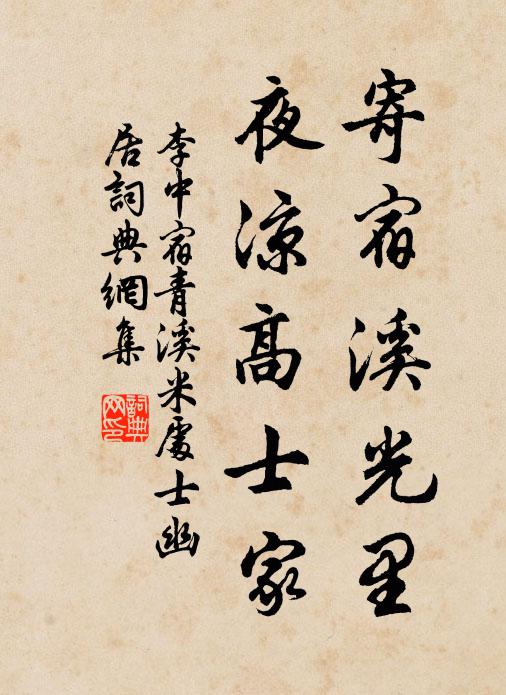 寄宿溪光里
夜涼高士家
李中宿青溪米處士幽
居詞典網集
詞典
网印